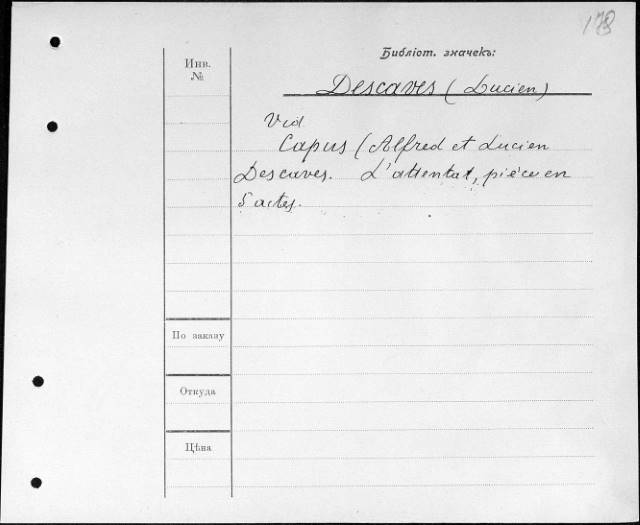 Библіот. значекъ:
Инв.
№
Descaves (Lucien)
Vid
Capus (Alfred et Lucien
Descaves. L'attentat, pièce en
5 actes.
По заказу
Откуда
Цѣна